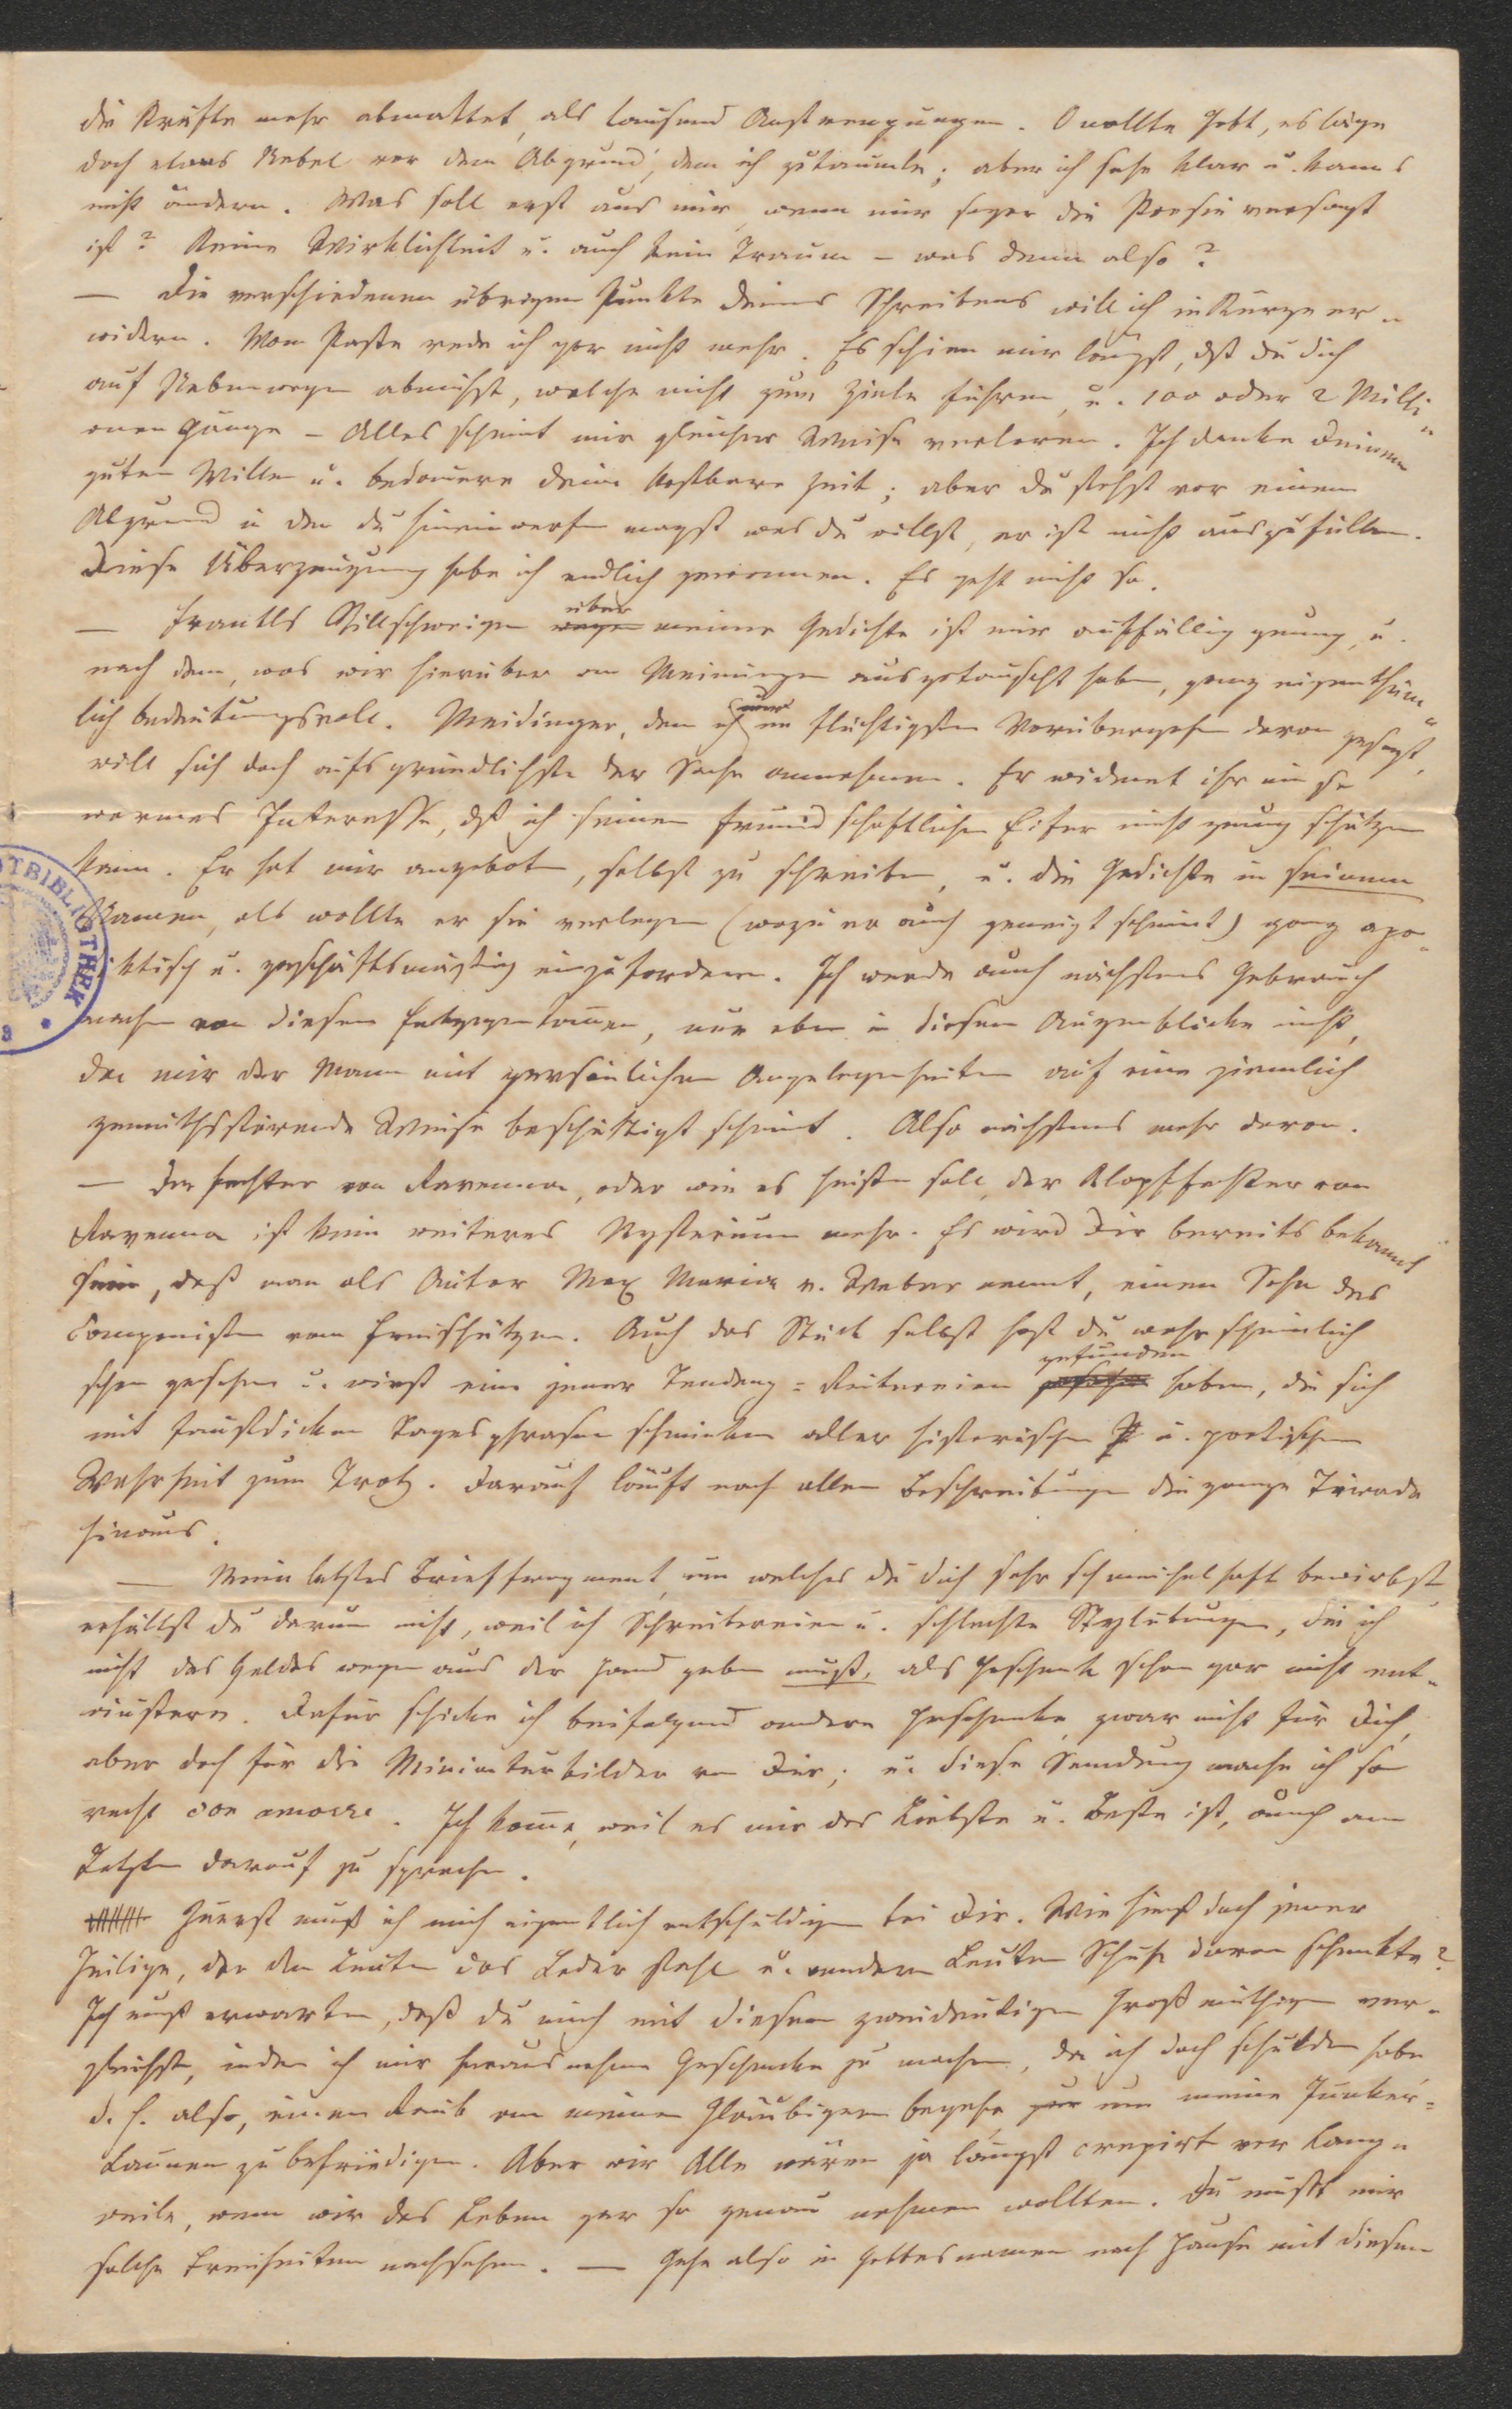 die Kräfte mehr abmattet, als tausend Anstrengungen. O wollte Gott, es läge
doch etwas Nebel vor dem Abgrund, dem ich zutaumle; aber ich sehe klar u. kanns
nicht ändern. Was soll erst aus mir, wenn mir sogar die Poesie versagt
ist? Keine Wirklichkeit u. auch kein Traum – was denn also?
— Die verschiedenen übrigen Punkte deines Schreibens will ich in Kürze er-
widern. Vom Paste rede ich gar nicht mehr. Es schien mir längst, dß du dich
auf Nebenwegen abmühst, welche nicht zum Ziele führen, u. 100 oder 2 Milli-
onen Gänge – Alles scheint mir gleicher Weise verloren. Ich danke Deinem
guten Willen u. bedauere deine kostbare Zeit; aber du stehst vor einem
Abgrund in den du hineinwerfen magst was du willst, er ist nicht auszufüllen.
Diese Überzeugung habe ich endlich gewonnen. Es geht nicht so.
— Frankls Stillschweigen wegen über meine Gedichte ist mir auffällig genug, u.
nach dem, was wir hierüber an Meinungen ausgetauscht haben, ganz eigenthüm-
lich bedeutungsvoll. Meidinger, dem ich nur im flüchtigsten Vorübergehn davon gesagt,
will sich doch aufs gründlichste der Sache annehmen. Er widmet ihr ein so
warmes Interesse, dß ich seinen freundschaftlichen Eifer nicht genug schätzen
kann. Er hat mir angeboten, selbst zu schreiben, u. die Gedichte in seinem
Namen, als wollte er sie verlegen (wozu er auch geneigt scheint) ganz apo-
diktisch u. geschäftsmäßig einzufordern. Ich werde auch nächstens Gebrauch
machen von diesem Entgegenkommen, nur eben in diesem Augenblicke nicht,
da mir der Mann mit persönlichen Angelegenheiten auf eine ziemlich
gemüthsstörende Weise beschäftigt scheint. Also nächstens mehr davon.
— Der Fechter von Ravenna, oder wie es heißen soll, der Klopffechter von
Ravenna ist kein weiteres Mysterium mehr. Es wird Dir bereits bekannt
sein, daß man als Autor Max Maria v. Weber nennt, einen Sohn des
Componisten vom Freischützen. Auch das Stück selbst hast du wahrscheinlich
schon gesehen u. wirst eine jener Tendenz-Reitereien gesehen gefunden haben, die sich
mit faustdicken Tagesphrasen schminken aller historischen P u. poetischen
Wahrheit zum Trotz. Darauf läuft nach allen Beschreibungen die ganze Tirade
hinaus.
— Mein letztes Brieffragment, um welches du dich sehr schmeichelhaft bewirbst
erhältst du darum nicht, weil ich Schreibereien u. schlechte Stylübungen, die ich
nicht des Geldes wegen aus der Hand geben muß, als Geschenk schon gar nicht ent-
äußere. Dafür schicke ich beifolgend andere Geschenke, zwar nicht für Dich,
aber doch für die Miniaturbilder von Dir; u. diese Sendung mache ich so
recht con amore. Ich komme, weil es mir das Liebste u. Beste ist, auch am
Letzten darauf zu sprechen.
Zuerst muß ich mich eigentlich entschuldigen bei Dir. Wie hieß doch jener
Heilige, der den Leuten das Leder stahl u. andern Leuten Schuhe davon schenkte?
Ich muß erwarten, daß du mich mit diesem zweideutigen Großmüthigen ver-
gleichst, indem ich mir herausnehme Geschenke zu machen, da ich doch Schulden habe
d. h. also, einen Raub an meinen Gläubigern begehe, um meine Junker-
Launen zu befriedigen. Aber wir Alle wären ja längst crepirt vor Lange-
weile, wenn wir das Leben gar so genau nehmen wollten. Du mußt mir
solche Freiheiten nachsehen. — Gehe also in Gottesnamen nach Hause mit diesem